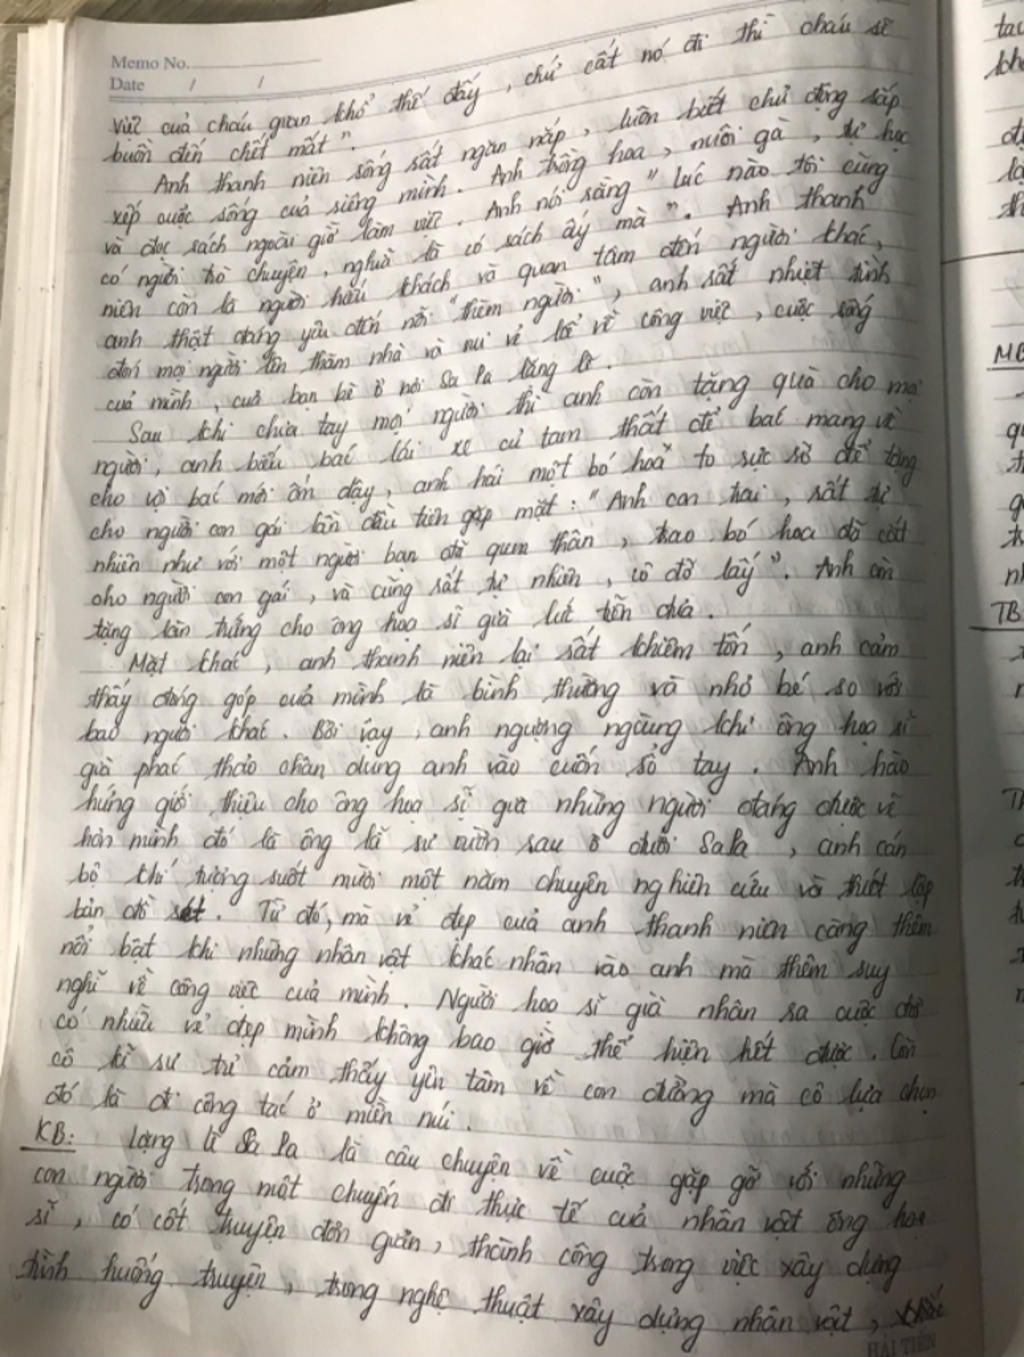 Memo No.
Date / /
việc của cháu gian khổ thế đấy, chứ cất nó đi thì cháu sẽ
buồn đến chết mất".
Anh thanh niên sống rất ngăn nắp, luôn biết chủ động sắp
xếp cuộc sống của riêng mình. Anh trồng hoa, nuôi gà, tự học
và đọc sách ngoài giờ làm việc. Anh nói rằng "lúc nào tôi cũng
có người trò chuyện, nghĩa là có sách ấy mà". Anh thanh
niên còn là người hiếu khách và quan tâm đến người khác,
anh thật đáng yêu đến nỗi "thèm người", anh rất nhiệt tình
đón mọi người lên thăm nhà và vui vẻ kể về công việc, cuộc sống
của mình, của bạn bè ở nơi Sa Pa lặng lẽ.
Sau khi chia tay mọi người thì anh còn tặng quà cho mọi
người, anh biếu bác lái xe củ tam thất để bác mang về
cho vợ bác mới ốm dậy, anh hái một bó hoa to sực sỡ để tặng
cho người con gái lần đầu tiên gặp mặt: "Anh con trai, rất tự
nhiên như với một người bạn đã quen thân, trao bó hoa đã cắt
cho người con gái, và cũng rất tự nhiên, cô đỡ lấy". Anh còn
tặng làn trứng cho ông họa sĩ già lúc tiễn chia.
Mặt khác, anh thanh niên lại rất khiêm tốn, anh cảm
thấy đóng góp của mình là bình thường và nhỏ bé so với
bao người khác. Bởi vậy, anh ngượng ngùng khi ông họa sĩ
già phác thảo chân dung anh vào cuốn sổ tay. Anh hào
hứng giới thiệu cho ông họa sĩ qua những người đáng được vẽ
hơn mình đó là ông kĩ sư vườn rau ở dưới SaPa, anh cán
bộ khí tượng suốt mười một năm chuyên nghiên cứu và thiết lập
bản đồ sét. Từ đó, mà vẻ đẹp của anh thanh niên càng thêm
nổi bật khi những nhân vật khác nhân vào anh mà thêm suy
nghĩ về công việc của mình. Người họa sĩ già nhận ra cuộc đời
có nhiều vẻ đẹp mình không bao giờ thể hiện hết được. Còn
cô kĩ sư trẻ cảm thấy yên tâm về con đường mà cô lựa chọn
đó là đi công tác ở miền núi.
KB: Lặng lẽ Sa Pa là câu chuyện về cuộc gặp gỡ với những
con người trong một chuyến đi thực tế của nhân vật ông họa
sĩ, có cốt truyện đơn giản, thành công trong việc xây dựng
tình huống truyện, trong nghệ thuật xây dựng nhân vật,
HẢI TIẾN
MB
TB